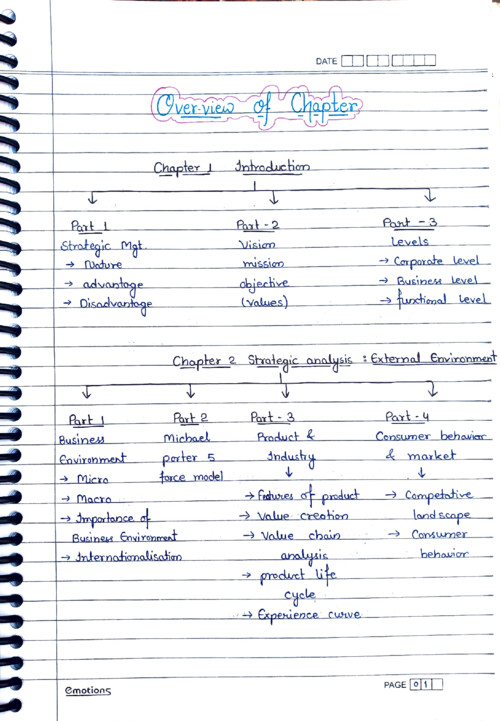 DATE
Over.view of Chapter
Chapter 1 Introduction
Part 1 Part - 2 Part - 3
Strategic Mgt. Vision Levels
→ Nature mission → Corporate Level
→ advantage objective → Business Level
→ Disadvantage (values) → functional Level
Chapter 2 Strategic analysis : External Environment
Part 1 Part 2 Part - 3 Part - 4
Business Michael Product & Consumer behavior
Environment porter 5 Industry & market
→ Micro force model ↓ ↓
→ Macro → Features of product → Competative
→ Importance of → Value creation landscape
Business Environment → Value chain → Consumer
→ Internationalisation analysis behavior
→ product life
cycle
→ Experience curve
emotions PAGE 01